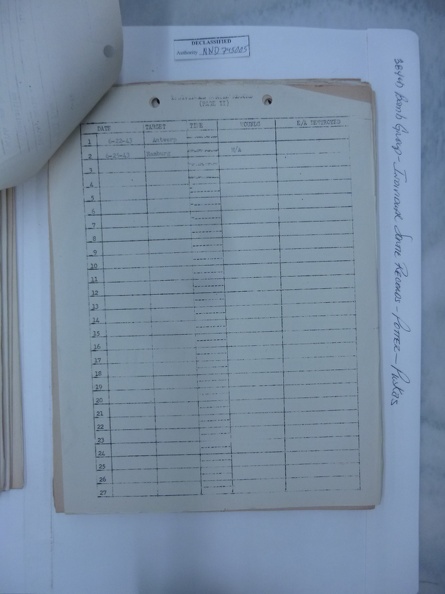 DECLASSIFIED
Authority NND 745005
(PAGE II)
DATE TARGET TIME ROUNDS E/A DESTROYED
1 6-22-43 Antwerp
2 6-25-43 Hamburg N/A
3
4
5
6
7
8
9
10
11
12
13
14
15
16
17
18
19
20
21
22
23
24
25
26
27
384th Bomb Group - Individual Sortie Records - Potter - Pluskus